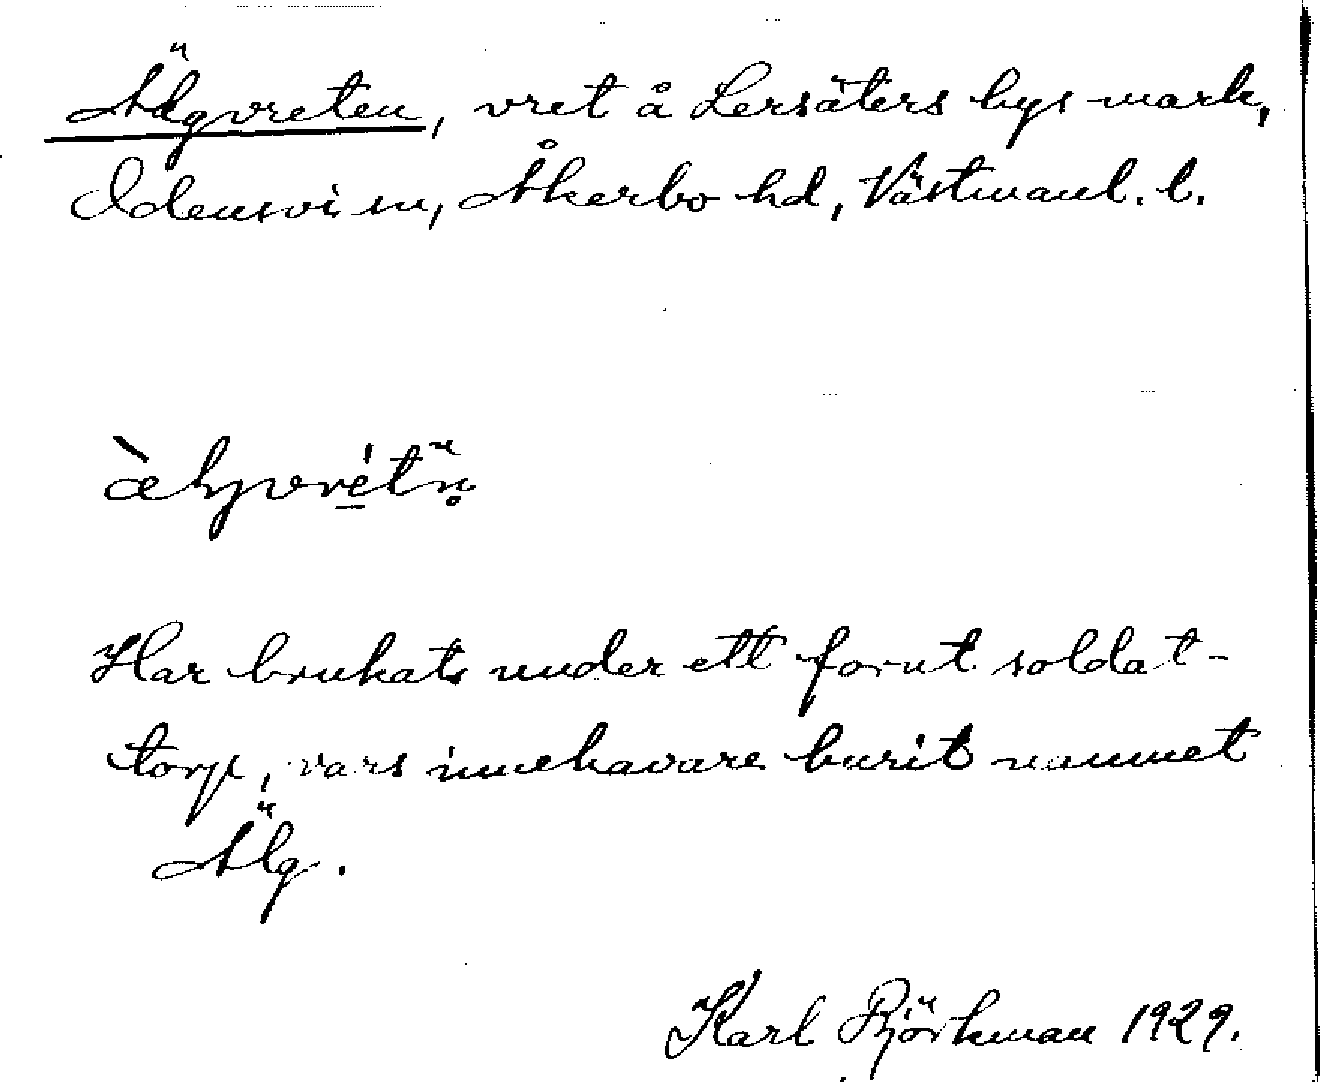 Älgvreten, vret å Lersäters bys mark,
Odensvi sn, Åkerbo hd, Västmanl. l.
Har brukats under ett förut soldat-
torp, vars innehavare burit namnet
Älg.
Karl Björkman 1929.